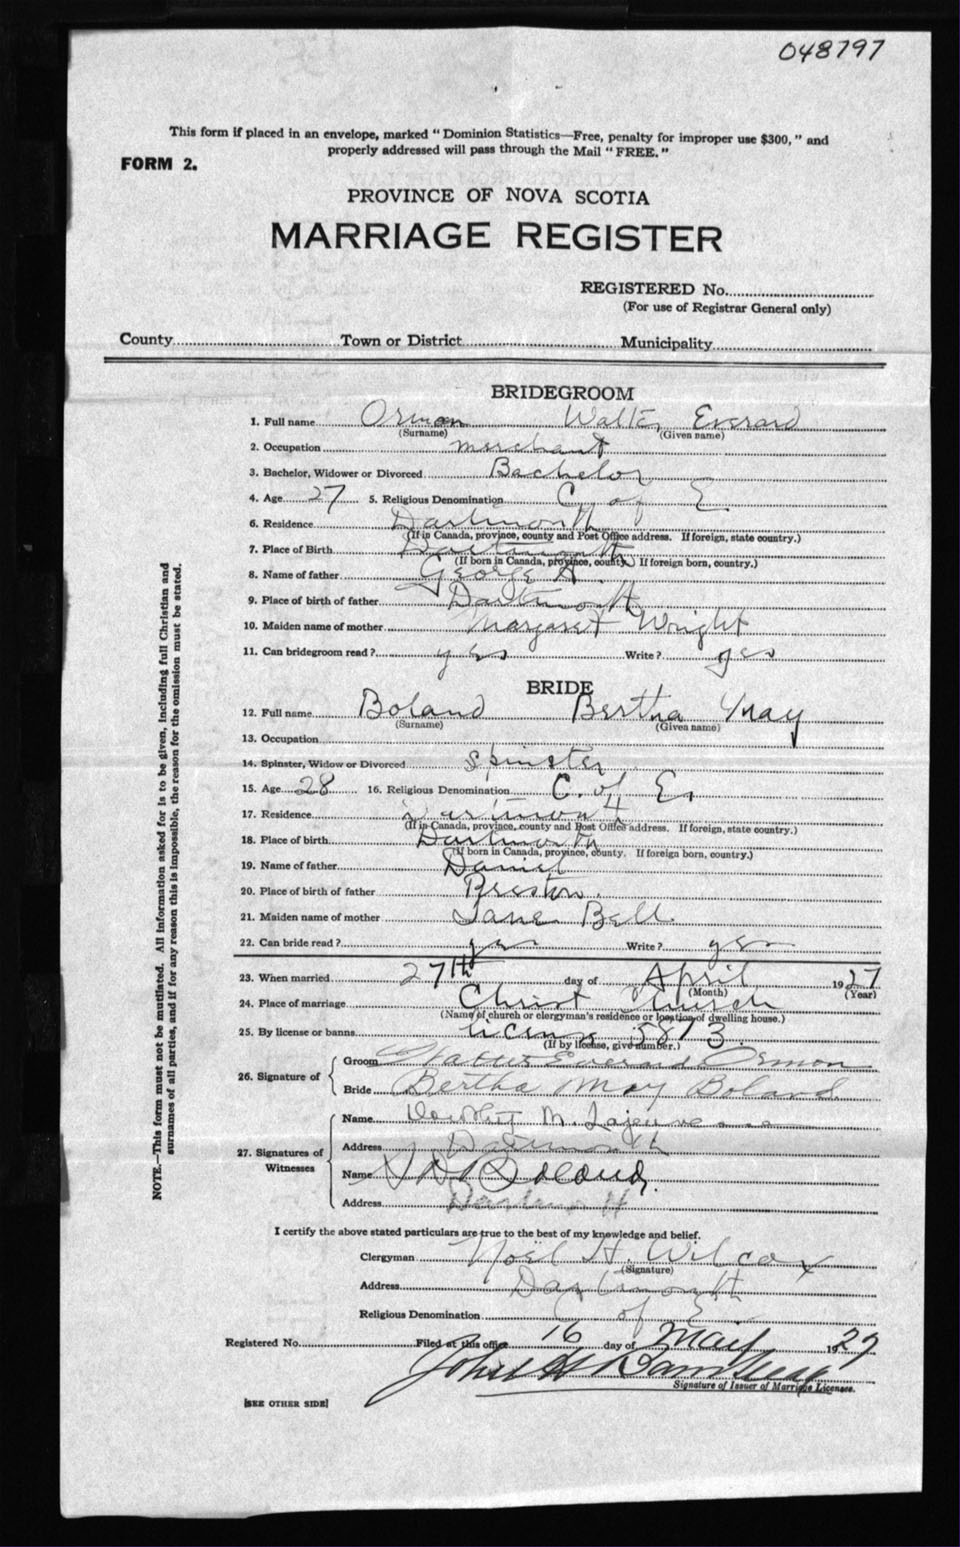 048797
This form if placed in an envelope, marked "Dominion Statistics—Free, penalty for improper use $300," and
properly addressed will pass through the Mail "FREE."
FORM 2.
PROVINCE OF NOVA SCOTIA
MARRIAGE REGISTER
REGISTERED No.
(For use of Registrar General only)
County Town or District Municipality
BRIDEGROOM
1. Full name Orman Walter Everard
(Surname) (Given name)
2. Occupation merchant
3. Bachelor, Widower or Divorced Bachelor
4. Age 27 5. Religious Denomination C of E
6. Residence Dartmouth
(If in Canada, province, county and Post Office address. If foreign, state country.)
7. Place of Birth Dartmouth
(If born in Canada, province, county.) If foreign born, country.)
8. Name of father George A.
9. Place of birth of father Dartmouth
10. Maiden name of mother Margaret Wright
11. Can bridegroom read? yes Write? yes
BRIDE
12. Full name Boland Bertha May
(Surname) (Given name)
13. Occupation
14. Spinster, Widow or Divorced spinster
15. Age 28 16. Religious Denomination C. of E.
17. Residence Dartmouth
(If in Canada, province, county and Post Office address. If foreign, state country.)
18. Place of birth Dartmouth
(If born in Canada, province, county. If foreign born, country.)
19. Name of father Daniel
20. Place of birth of father Preston.
21. Maiden name of mother Jane Bell
22. Can bride read? yes Write? yes
23. When married 27th day of April 1927
(Month) (Year)
24. Place of marriage Christ Church
(Name of church or clergyman's residence or location of dwelling house.)
25. By license or banns license 5873.
(If by license, give number.)
26. Signature of Groom Walter Everard Orman
Bride Bertha May Boland.
27. Signatures of Witnesses
Name M.
Address Dartmouth
Name Boland.
Address Dartmouth
I certify the above stated particulars are true to the best of my knowledge and belief.
Clergyman Noël H. Wilcox
(Signature)
Address Dartmouth
Religious Denomination C of E
Registered No. Filed at this office 16 day of May 1927
John
Signature of Issuer of Marriage Licenses.
[SEE OTHER SIDE]
NOTE.—This form must not be mutilated. All information asked for is to be given, including full Christian and
surnames of all parties, and if for any reason this is impossible, the reason for the omission must be stated.